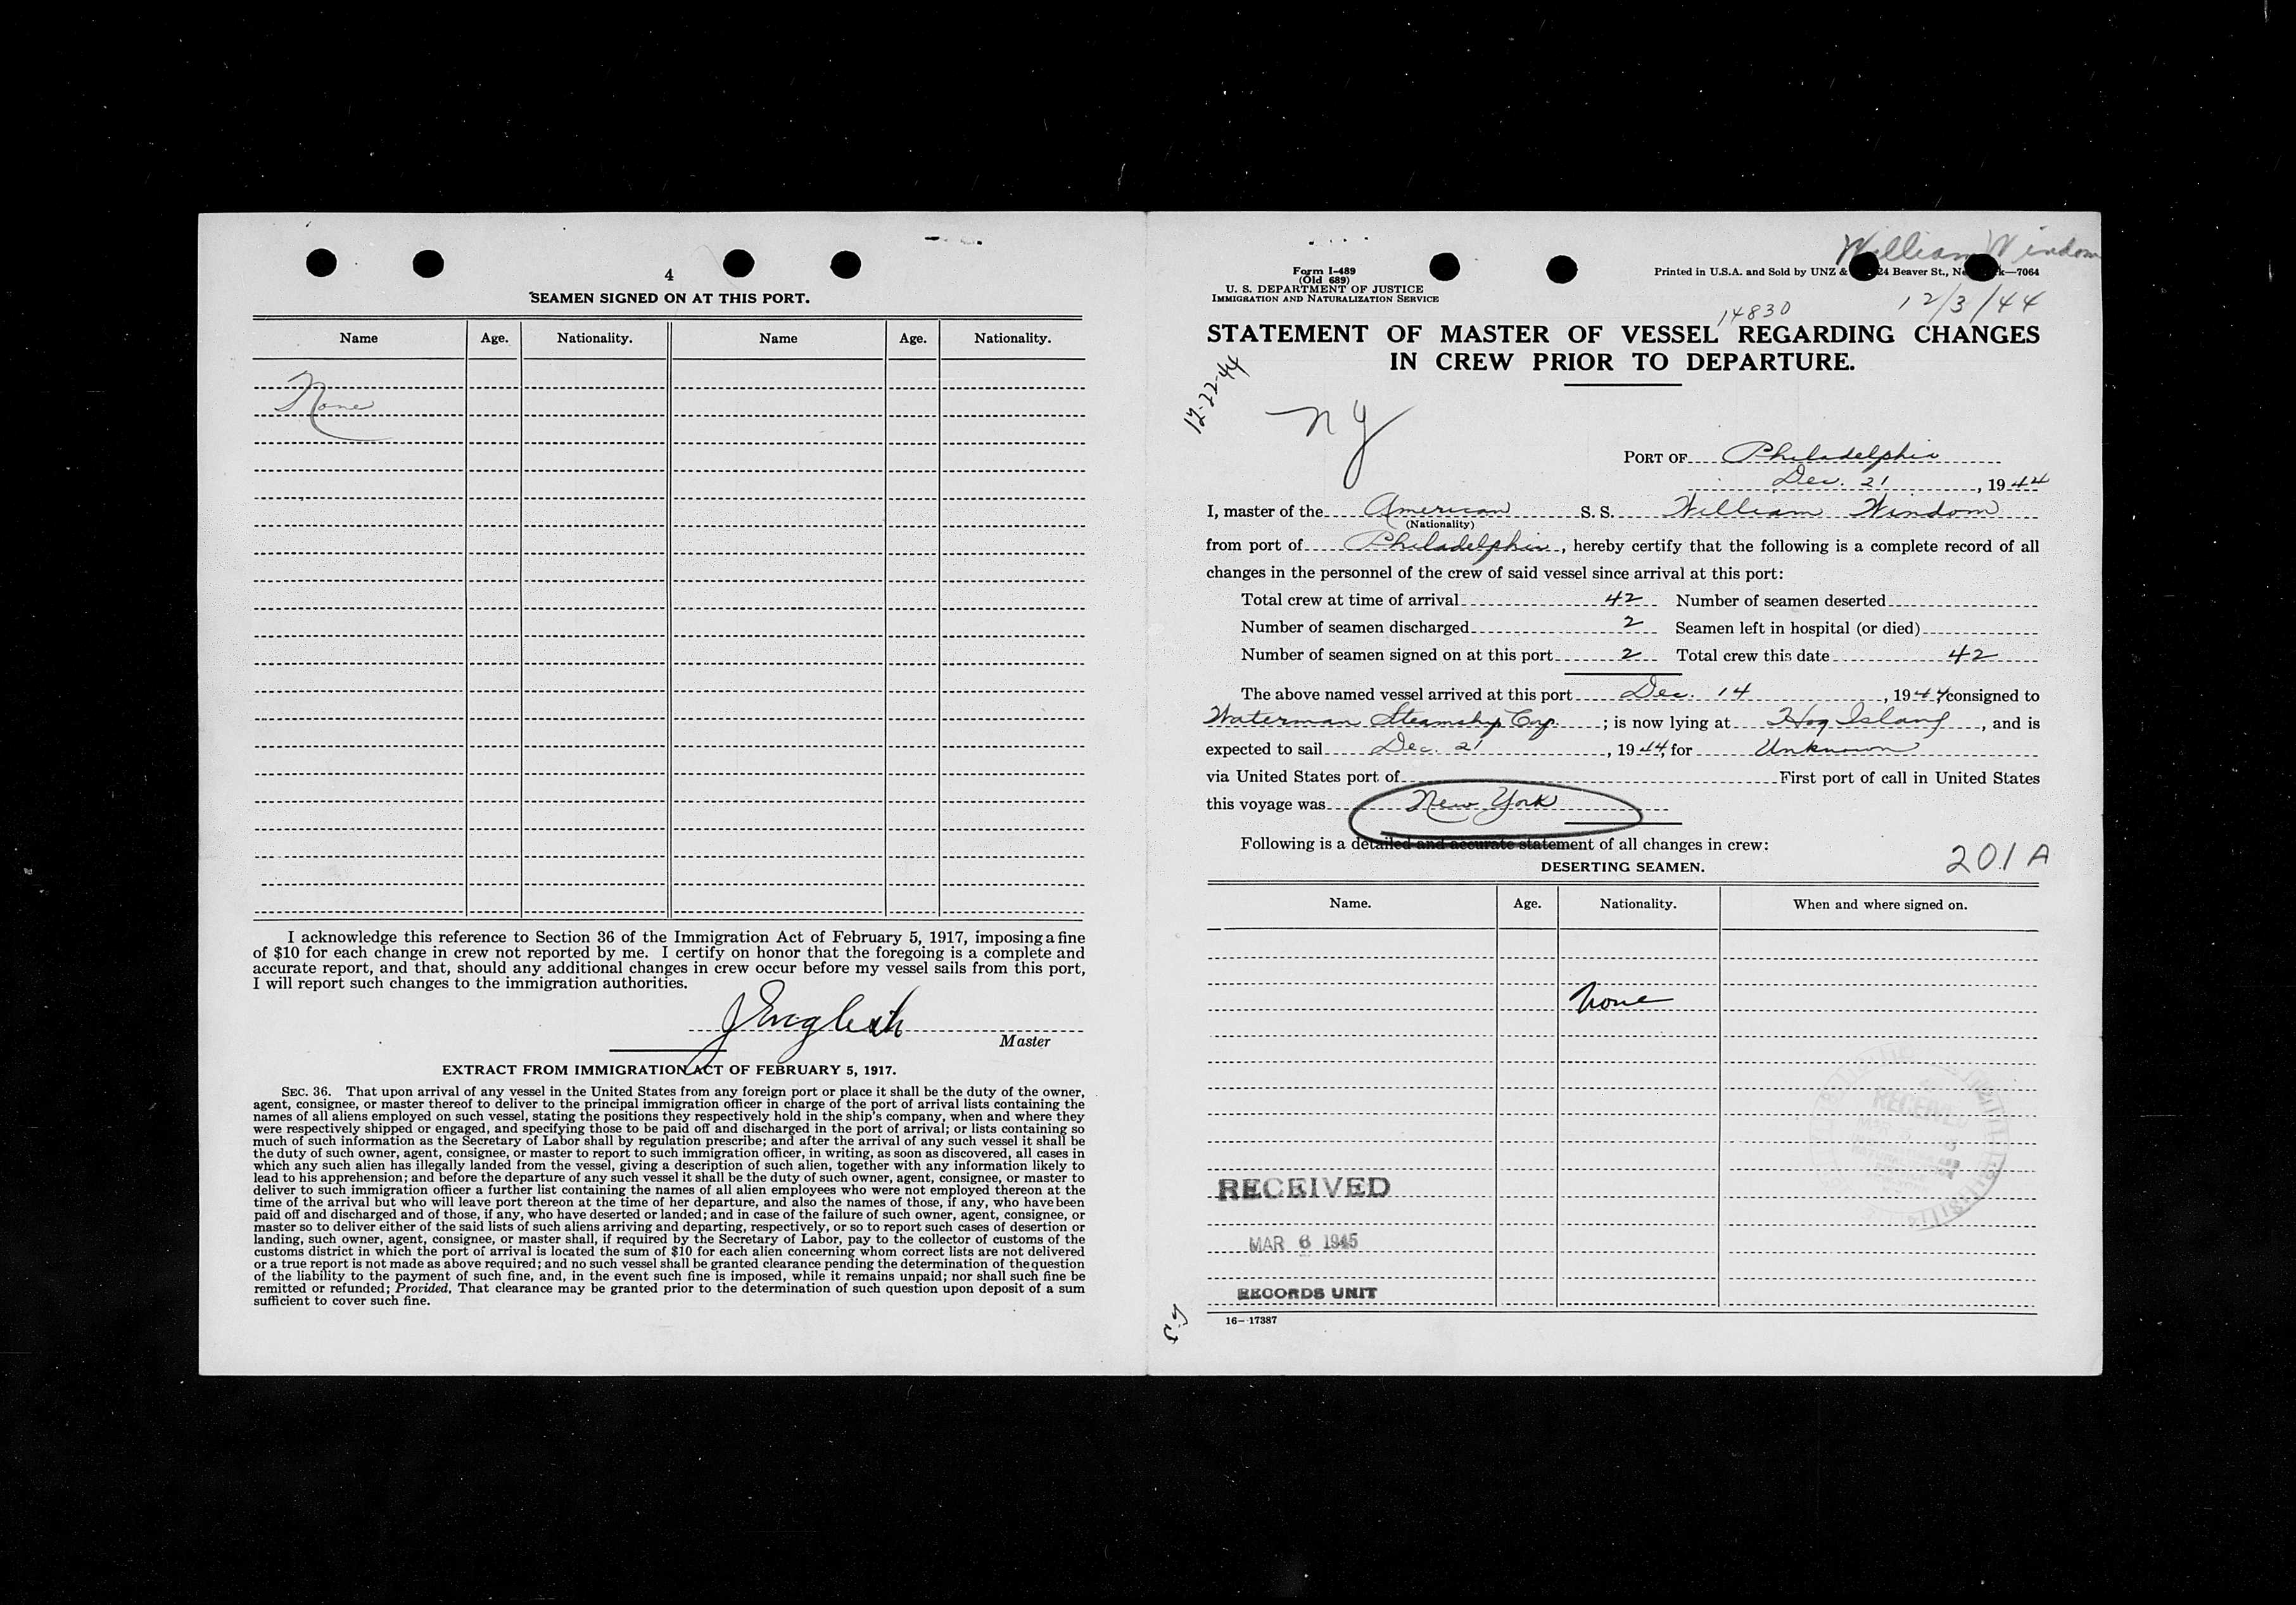 4
SEAMEN SIGNED ON AT THIS PORT.
Name Age. Nationality. Name Age. Nationality.
None
I acknowledge this reference to Section 36 of the Immigration Act of February 5, 1917, imposing a fine
of $10 for each change in crew not reported by me. I certify on honor that the foregoing is a complete and
accurate report, and that, should any additional changes in crew occur before my vessel sails from this port,
I will report such changes to the immigration authorities.
J English
Master
EXTRACT FROM IMMIGRATION ACT OF FEBRUARY 5, 1917.
SEC. 36. That upon arrival of any vessel in the United States from any foreign port or place it shall be the duty of the owner,
agent, consignee, or master thereof to deliver to the principal immigration officer in charge of the port of arrival lists containing the
names of all aliens employed on such vessel, stating the positions they respectively hold in the ship's company, when and where they
were respectively shipped or engaged, and specifying those to be paid off and discharged in the port of arrival; or lists containing so
much of such information as the Secretary of Labor shall by regulation prescribe; and after the arrival of any such vessel it shall be
the duty of such owner, agent, consignee, or master to report to such immigration officer, in writing, as soon as discovered, all cases in
which any such alien has illegally landed from the vessel, giving a description of such alien, together with any information likely to
lead to his apprehension; and before the departure of any such vessel it shall be the duty of such owner, agent, consignee, or master to
deliver to such immigration officer a further list containing the names of all alien employees who were not employed thereon at the
time of the arrival but who will leave port thereon at the time of her departure, and also the names of those, if any, who have been
paid off and discharged and of those, if any, who have deserted or landed; and in case of the failure of such owner, agent, consignee, or
master so to deliver either of the said lists of such aliens arriving and departing, respectively, or so to report such cases of desertion or
landing, such owner, agent, consignee, or master shall, if required by the Secretary of Labor, pay to the collector of customs of the
customs district in which the port of arrival is located the sum of $10 for each alien concerning whom correct lists are not delivered
or a true report is not made as above required; and no such vessel shall be granted clearance pending the determination of the question
of the liability to the payment of such fine, and, in the event such fine is imposed, while it remains unpaid; nor shall such fine be
remitted or refunded; Provided, That clearance may be granted prior to the determination of such question upon deposit of a sum
sufficient to cover such fine.
William Windom
Form I-489
(Old 689)
U. S. DEPARTMENT OF JUSTICE
IMMIGRATION AND NATURALIZATION SERVICE
Printed in U.S.A. and Sold by UNZ & 24 Beaver St., N k—7064
14830 12/3/44
STATEMENT OF MASTER OF VESSEL REGARDING CHANGES
IN CREW PRIOR TO DEPARTURE.
12-22-44
NY
PORT OF Philadelphia
Dec. 21, 1944
I, master of the American S. S. William Windom
(Nationality)
from port of Philadelphia, hereby certify that the following is a complete record of all
changes in the personnel of the crew of said vessel since arrival at this port:
Total crew at time of arrival 42 Number of seamen deserted
Number of seamen discharged 2 Seamen left in hospital (or died)
Number of seamen signed on at this port 2 Total crew this date 42
The above named vessel arrived at this port Dec. 14, 1944, consigned to
Waterman Steamship Corp.; is now lying at Hog Island, and is
expected to sail Dec. 21, 1944, for Unknown
via United States port of First port of call in United States
this voyage was New York
Following is a detailed and accurate statement of all changes in crew:
DESERTING SEAMEN.
201A
Name. Age. Nationality. When and where signed on.
None
RECEIVED
RECEIVED
MAR 6 1945
RECORDS UNIT
16-17387